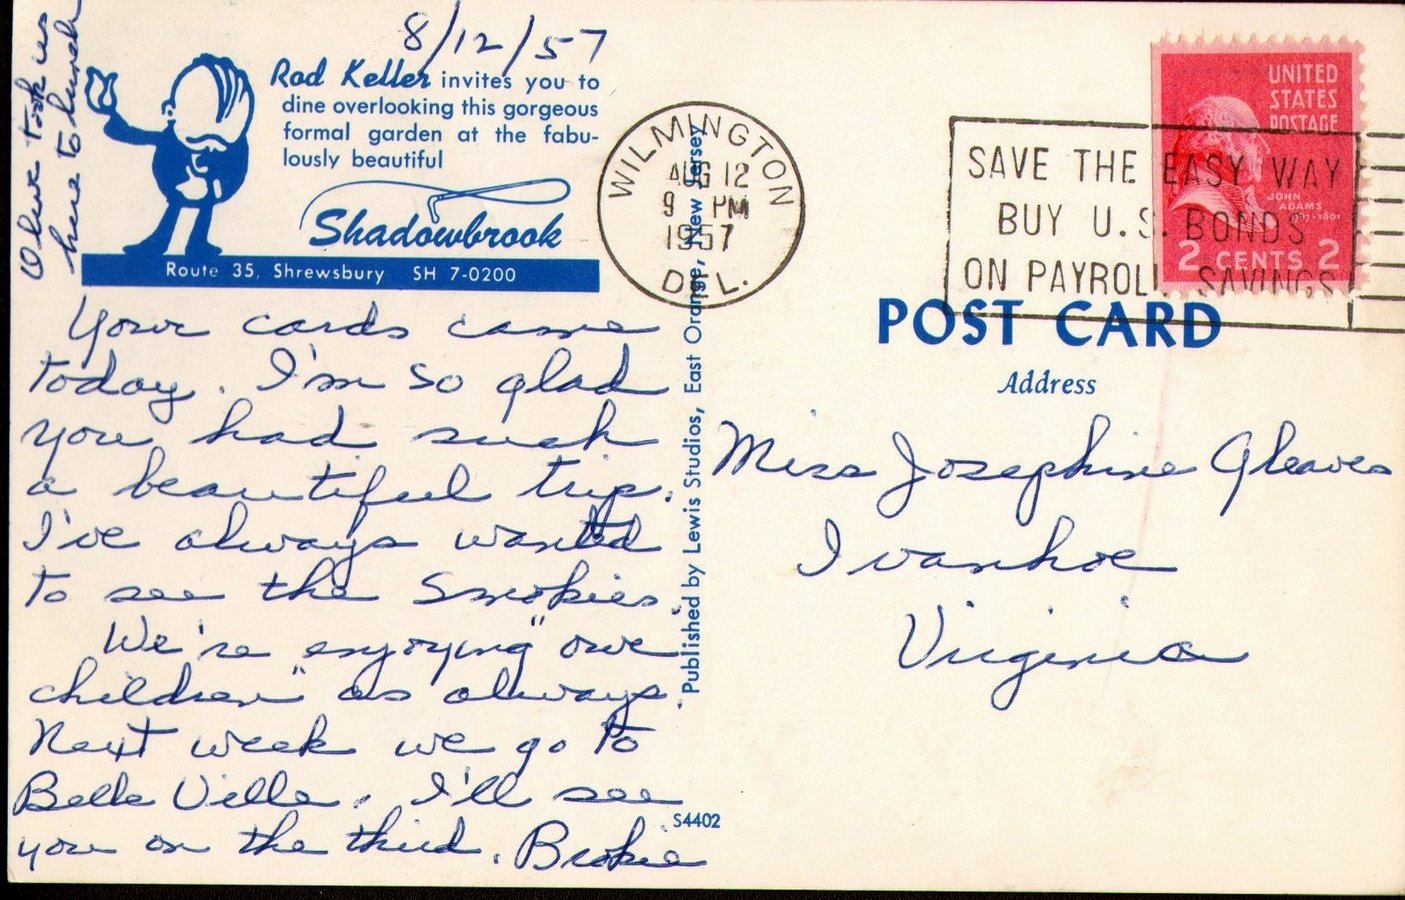 8/12/57
Rod Keller invites you to
dine overlooking this gorgeous
formal garden at the fabu-
lously beautiful
Shadowbrook
Route 35, Shrewsbury SH 7-0200
took us
here to lunch
Your cards came
today. I'm so glad
you had such
a beautiful trip.
I've always wanted
to see the Smokies.
We're enjoying "our
children" as always.
Next week we go to
Belle Ville. I'll see
you on the third. Brokie
S4402
Published by Lewis Studios, East Orange, New Jersey
WILMINGTON
AUG 12
9 PM
1957
DEL.
SAVE THE EASY WAY
BUY U.S. BONDS
ON PAYROLL SAVINGS
UNITED
STATES
POSTAGE
JOHN
ADAMS
1797-1801
2 CENTS 2
POST CARD
Address
Miss Josephine Gleaves
Ivanhoe
Virginia